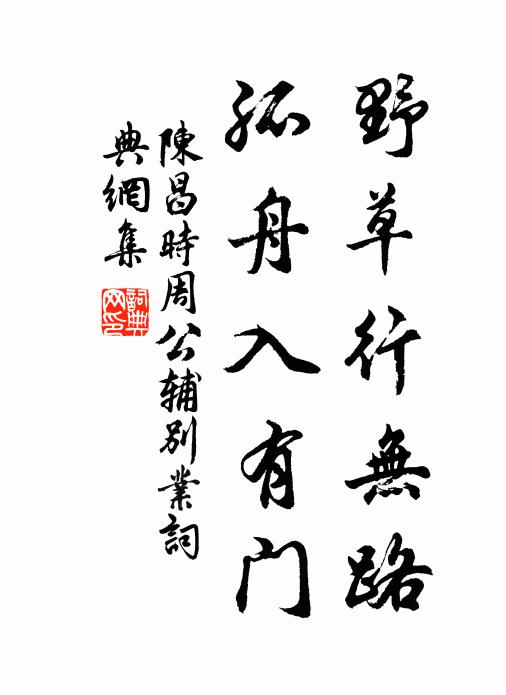 野草行無路
孤舟入有门
陳昌時周公辅别業詞
典網集
詞典
网印